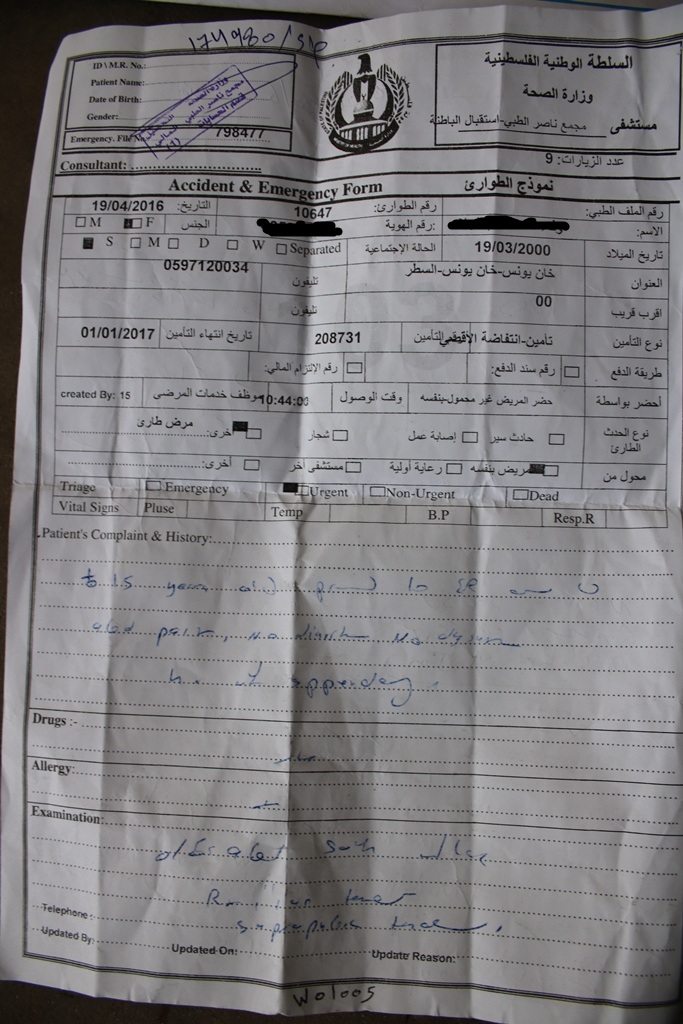 174980/
ID \ M.R. No.:
Patient Name:
Date of Birth:
Gender:
Emergency. File No. 798477
وزارة الصحة
مجمع ناصر الطبي
السلطة الوطنية الفلسطينية
وزارة الصحة
مستشفى مجمع ناصر الطبي-استقبال الباطنة
Consultant:
عدد الزيارات: 9
Accident & Emergency Form
نموذج الطوارئ
رقم الملف الطبي:
رقم الطوارئ: 10647
التاريخ: 19/04/2016
الاسم:
رقم الهوية:
الجنس F M
تاريخ الميلاد 19/03/2000
الحالة الإجتماعية
S M D W Separated
العنوان خان يونس-خان يونس-السطر
تليفون 0597120034
اقرب قريب 00
تليفون
نوع التأمين تأمين-انتفاضة الأقصى
التأمين 208731
تاريخ انتهاء التأمين 01/01/2017
طريقة الدفع رقم سند الدفع: رقم الإلتزام المالي:
أحضر بواسطة حضر المريض غير محمول-بنفسه
وقت الوصول 10:44:00
موظف خدمات المرضى created By: 15
نوع الحدث الطارئ حادث سير إصابة عمل شجار أخرى: مرض طارئ
محول من المريض بنفسه رعاية أولية مستشفى آخر أخرى:
Triage Emergency Urgent Non-Urgent Dead
Vital Signs Pluse Temp B.P Resp.R
Patient's Complaint & History:
15 years old to ER
abd pain, no no
Drugs :-
Allergy:
Examination:
soft
Telephone :
Updated By: Updated On: Update Reason:
W01005